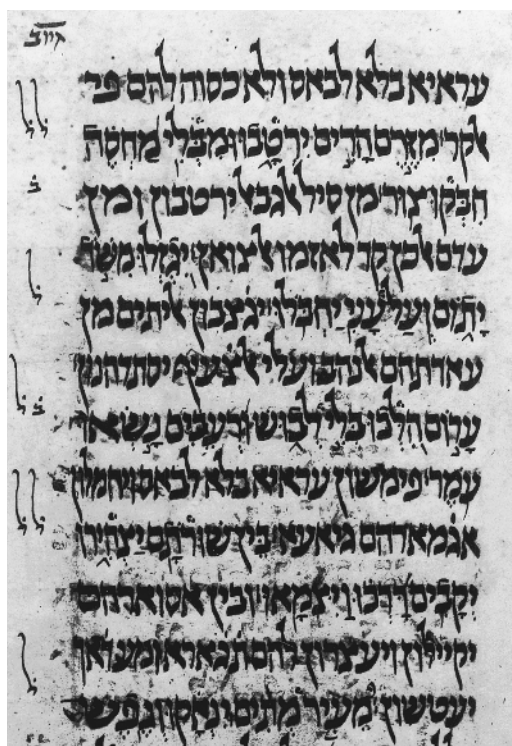 איוב
עראיא בלא לבאס ולא כסוה להם פר
אלקר מִזֶּרֶם הָרִים יִרְטָבוּ וּמִבְּלִי מַחְסֶה
חִבְּקוּ צוּר מן סיל אלגבאל ירטבון ומן
עדם אלכן קד לאזמו אלצואן יִגְזְלוּ מִשֹּׁד
יָתוֹם וְעַל עָנִי יַחְבֹּלוּ ויגצבון אליתים מן
אלנהב ועלי אלצעיף יסתרהנון
עָרוֹם הִלְּכוּ בְּלִי לְבוּשׁ וּרְעֵבִים נָשְׂאוּ
עֹמֶר פימשון עראיא בלא לבאס ויחמלון
אגמארהם גיאעא בין שׁוּרֹתָם יַצְהִירוּ
יְקָבִים דָּרְכוּ וַיִּצְמָאוּ ובין אסוארהם
יקיילון ויעצרון להם
יעטשון מֵעִיר מְתִים יִנְאָקוּ וְנֶפֶשׁ